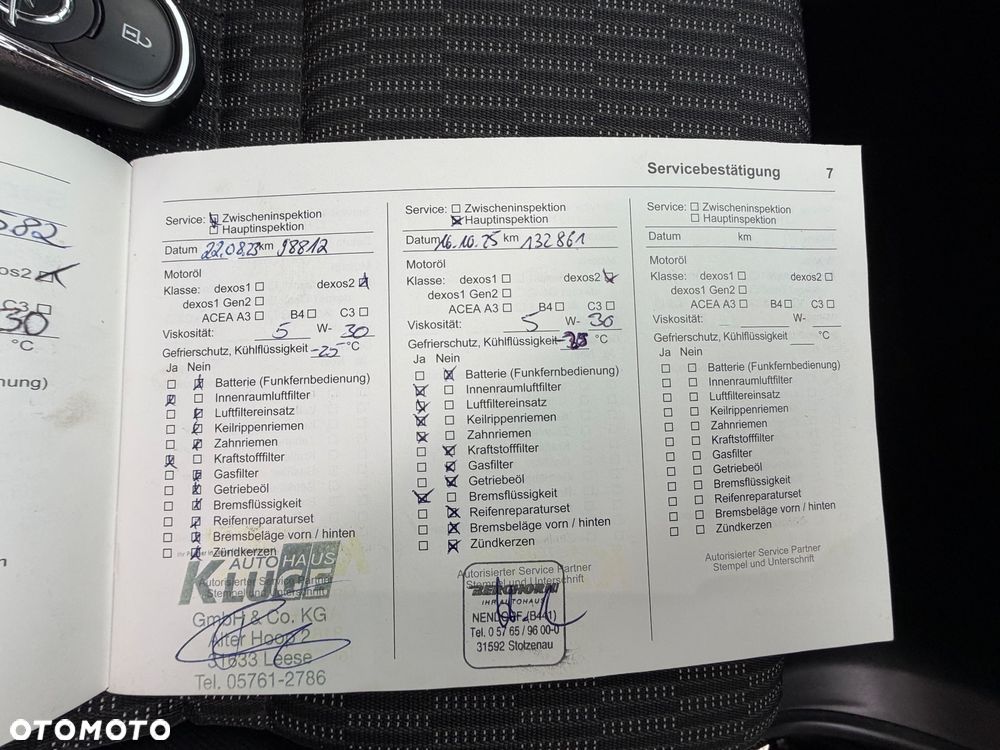 582
os2
C3
30
°C
nung)
Servicebestätigung 7
Service: Zwischeninspektion
Hauptinspektion
Datum 22.08.23 km 98812
Motoröl
Klasse: dexos1 dexos2
dexos1 Gen2
ACEA A3 B4 C3
Viskosität: 5 W- 30
Gefrierschutz, Kühlflüssigkeit -25 °C
Ja Nein
Batterie (Funkfernbedienung)
Innenraumluftfilter
Luftfiltereinsatz
Keilrippenriemen
Zahnriemen
Kraftstofffilter
Gasfilter
Getriebeöl
Bremsflüssigkeit
Reifenreparaturset
Bremsbeläge vorn / hinten
Zündkerzen
AUTOHAUS
Autorisierter Service Partner
Stempel und Unterschrift
GmbH & Co. KG
Alter Hoop 2
31633 Leese
Tel. 05761-2786
Service: Zwischeninspektion
Hauptinspektion
Datum 16.10.25 km 132861
Motoröl
Klasse: dexos1 dexos2
dexos1 Gen2
ACEA A3 B4 C3
Viskosität: 5 W- 30
Gefrierschutz, Kühlflüssigkeit °C
Ja Nein
Batterie (Funkfernbedienung)
Innenraumluftfilter
Luftfiltereinsatz
Keilrippenriemen
Zahnriemen
Kraftstofffilter
Gasfilter
Getriebeöl
Bremsflüssigkeit
Reifenreparaturset
Bremsbeläge vorn / hinten
Zündkerzen
Autorisierter Service Partner
Stempel und Unterschrift
BERGHORN
IHR AUTOHAUS
NENDORF (B441)
Tel. 0 57 65 / 96 00-0
31592 Stolzenau
Service: Zwischeninspektion
Hauptinspektion
Datum km
Motoröl
Klasse: dexos1 dexos2
dexos1 Gen2
ACEA A3 B4 C3
Viskosität: W-
Gefrierschutz, Kühlflüssigkeit °C
Ja Nein
Batterie (Funkfernbedienung)
Innenraumluftfilter
Luftfiltereinsatz
Keilrippenriemen
Zahnriemen
Kraftstofffilter
Gasfilter
Getriebeöl
Bremsflüssigkeit
Reifenreparaturset
Bremsbeläge vorn / hinten
Zündkerzen
Autorisierter Service Partner
Stempel und Unterschrift
OTOMOTO